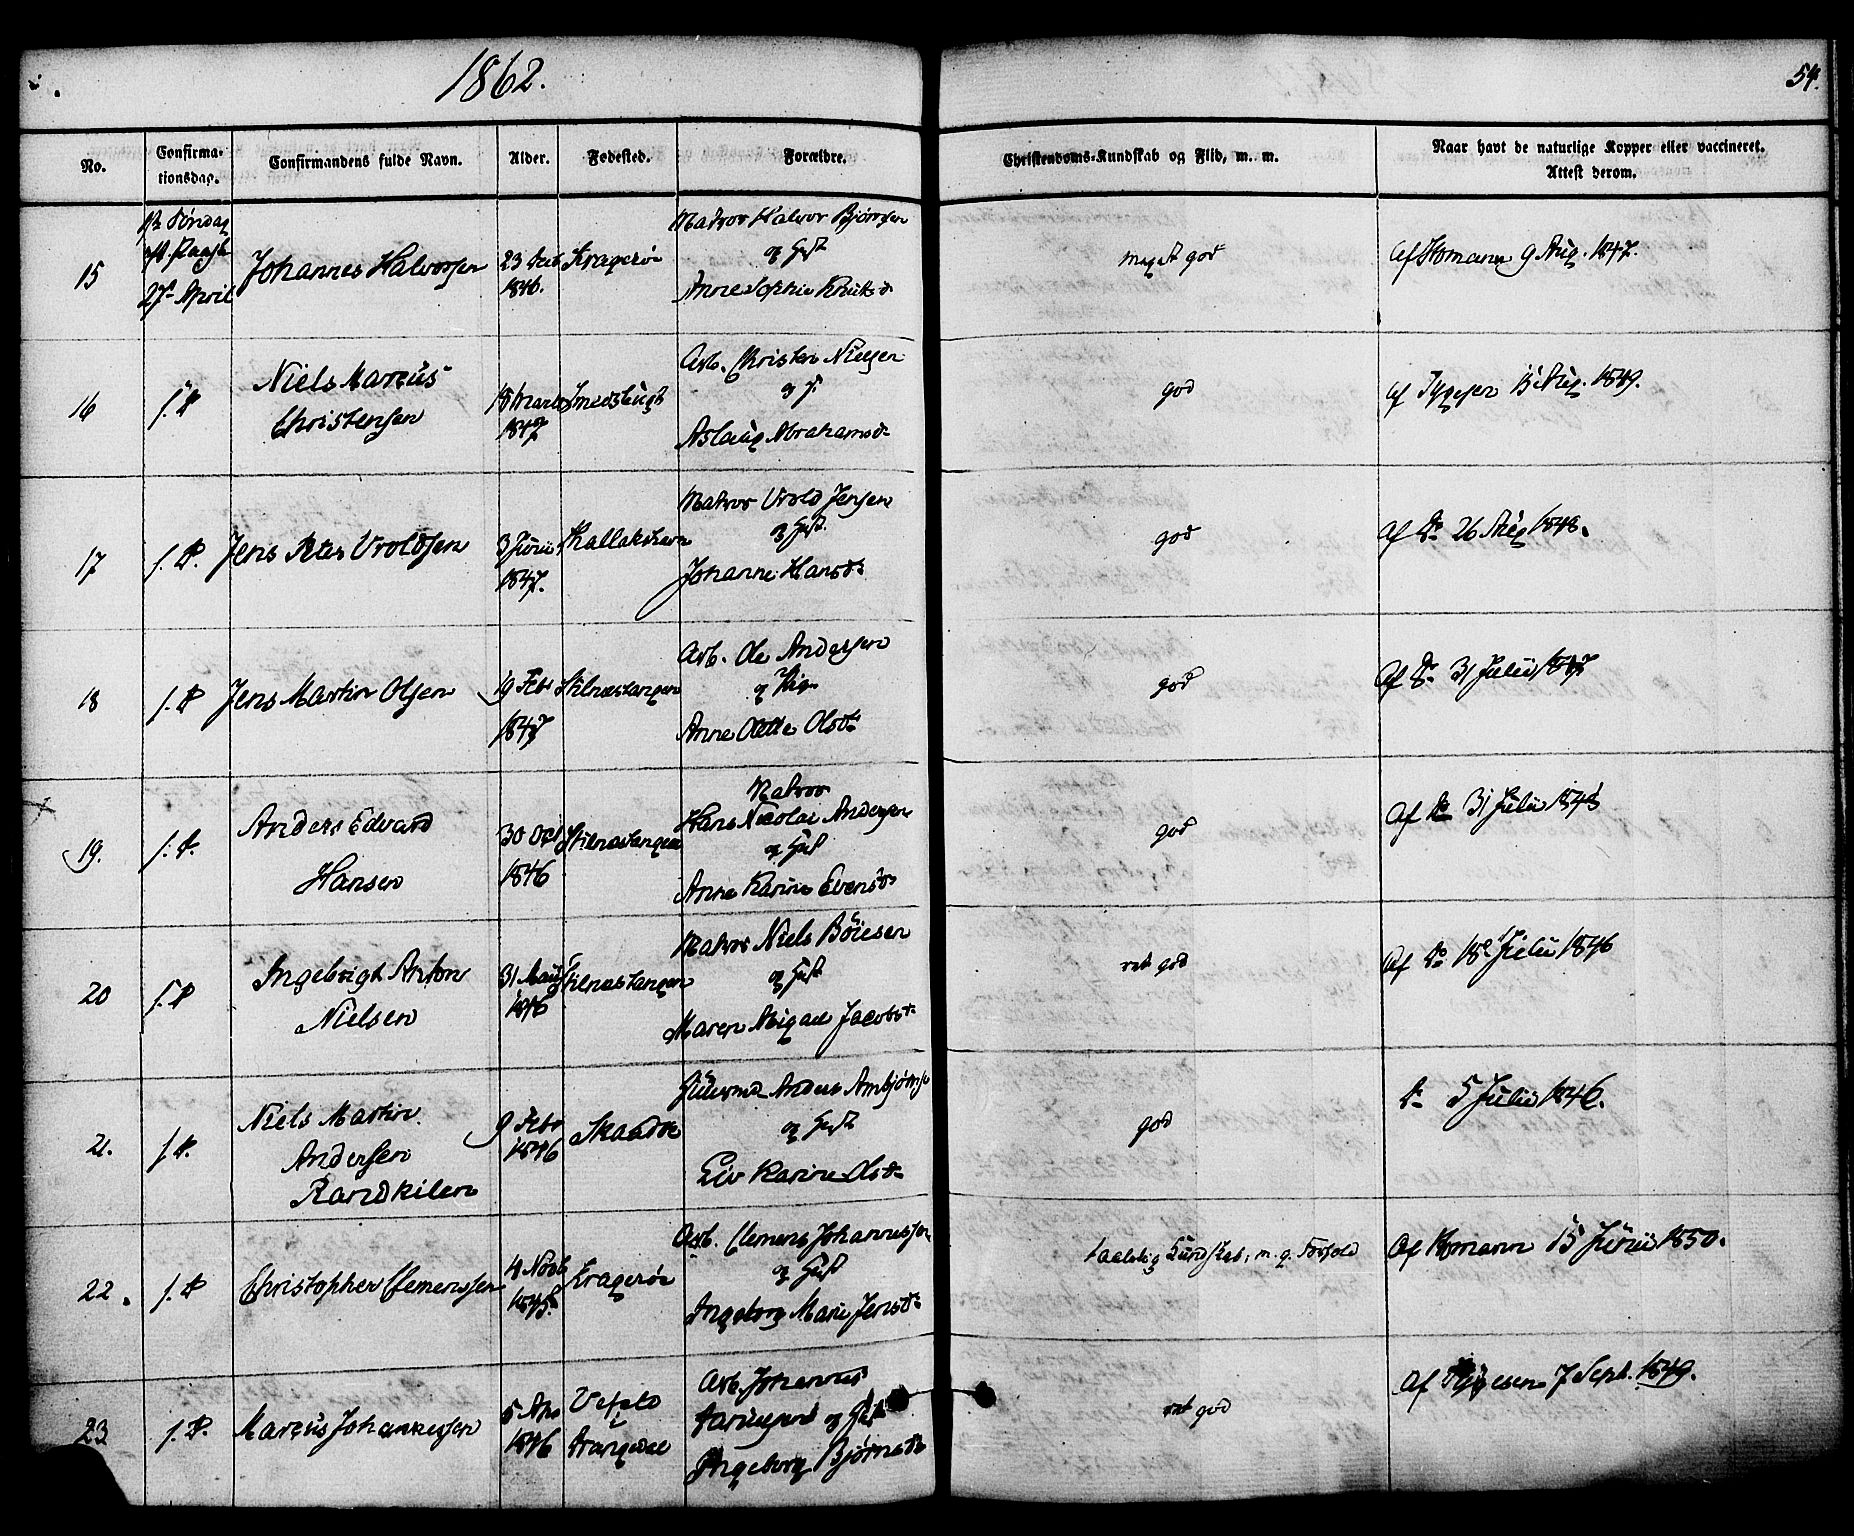 1862.
54.
No.
Confirma-
tionsdag.
Confirmandens fulde Navn.
Alder.
Fødested.
Forældre.
Christendoms-Kundskab og Flid, m. m.
Naar havt de naturlige Kopper eller vaccineret.
Attest derom.
15
Søndag
27 April
Johannes Halvorsen
23 Feb
1846.
Kragerøe
Matros Halvor Bjørnsen
og Hust
Anne Sophie Knutsd
meget god
Af Homann 9 Aug. 1847.
16
f. D
Niels Marcus
Christensen
1847
Arb. Christen Nielsen
og
Aslaug Abrahamsd
god
af Tygesen 15 Aug. 1849.
17
f. D.
Jens Peter Vroldsen
3 Juni
1847.
Matros Vrold Jensen
og Hust.
Johanne Hansd
god
Af Do 26 Aug 1848.
18
f. D
Jens Martin Olsen
19 Feb
1847
Stilnæstangen
Arb. Ole Andersen
og Pig
Anne Olette Olsd
god
Af Do 31 Julii 1847
19.
f. D.
Anders Edvard
Hansen
30 Oct
1846
Stilnæstangen
Matros
Hans Nicolai Andersen
og Hust
Anne Karine Evensd
god
Af Do 31 Julii 1848
20
f. D
Ingebrigt Anton
Nielsen
31 Mai
1846
Stilnæstangen
Matros Niels Böiesen
og Hust
Maren Abigael Jacobsd
ret god
Af Do 18 Julii 1846
21.
f. D.
Niels Martin
Andersen
Randkilen
9 Feb
1846
Skaadøe
Anders Ambjørns
og Hust
Liv Karine Olsd
god
Do 5 Julii 1846.
22.
f. D
Christopher Clemenssen
4 Novb
1845.
Kragerøe
Arb. Clemens Johannessen
og Hust
Ingeborg Marie Jensd
taalelig Kundskab; m. g. Forhold
Af Homann 15 Junii 1850.
23
f. D.
Marcus Johannessen
5 Apr
1846
i
Drangedal
Arb. Johannes
og Hust
Ingeborg Bjørnsd
ret god
Af Tygesen 7 Sept. 1849.